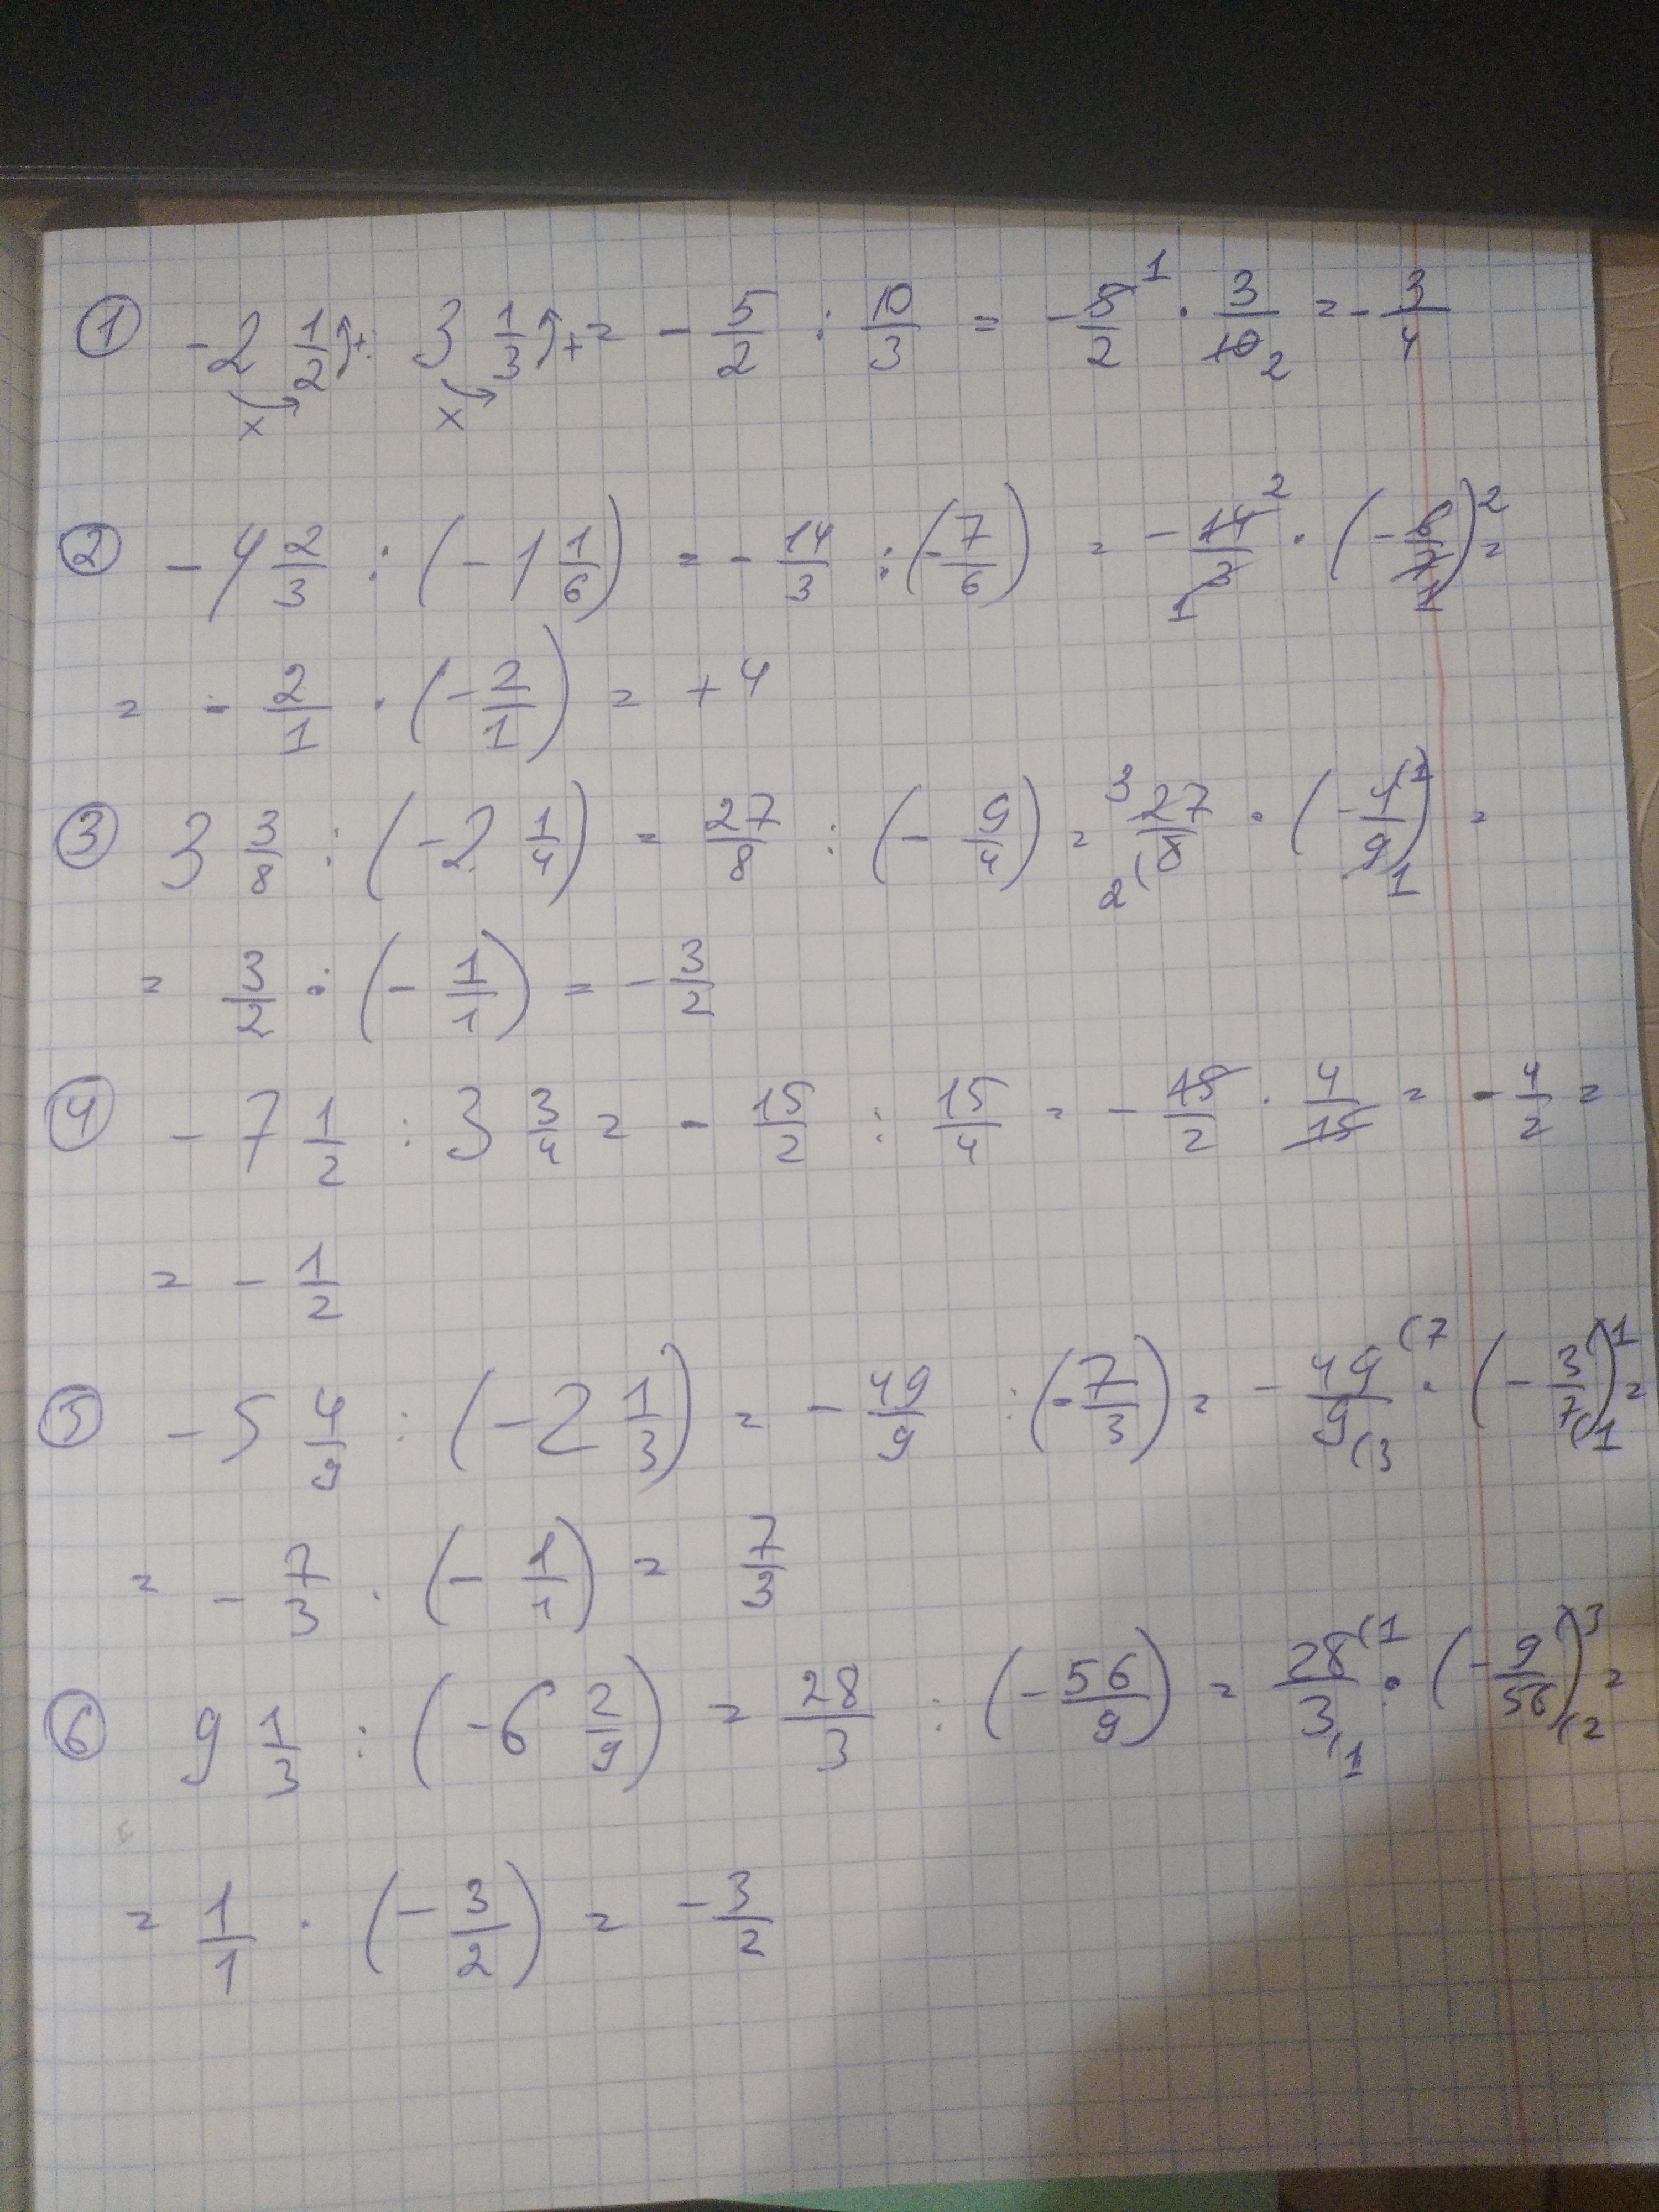 ① -2 1/2 : 3 1/3 = - 5/2 : 10/3 = - 5/2 · 3/10 = - 3/4
② - 4 2/3 : (- 1 1/6) = - 14/3 : (- 7/6) = - 14/3 · (- 6/7) =
= - 2/1 · (- 2/1) = + 4
③ 3 3/8 : (-2 1/4) = 27/8 : (- 9/4) = 27/8 · (- 4/9) =
= 3/2 · (- 1/1) = - 3/2
④ - 7 1/2 : 3 3/4 = - 15/2 : 15/4 = - 15/2 · 4/15 = - 4/2 =
= - 1/2
⑤ - 5 4/9 : (-2 1/3) = - 49/9 : (- 7/3) = - 49/9 · (- 3/7) =
= - 7/3 · (- 1/1) = 7/3
⑥ 9 1/3 : (-6 2/9) = 28/3 : (- 56/9) = 28/3 · (- 9/56) =
= 1/1 · (- 3/2) = - 3/2